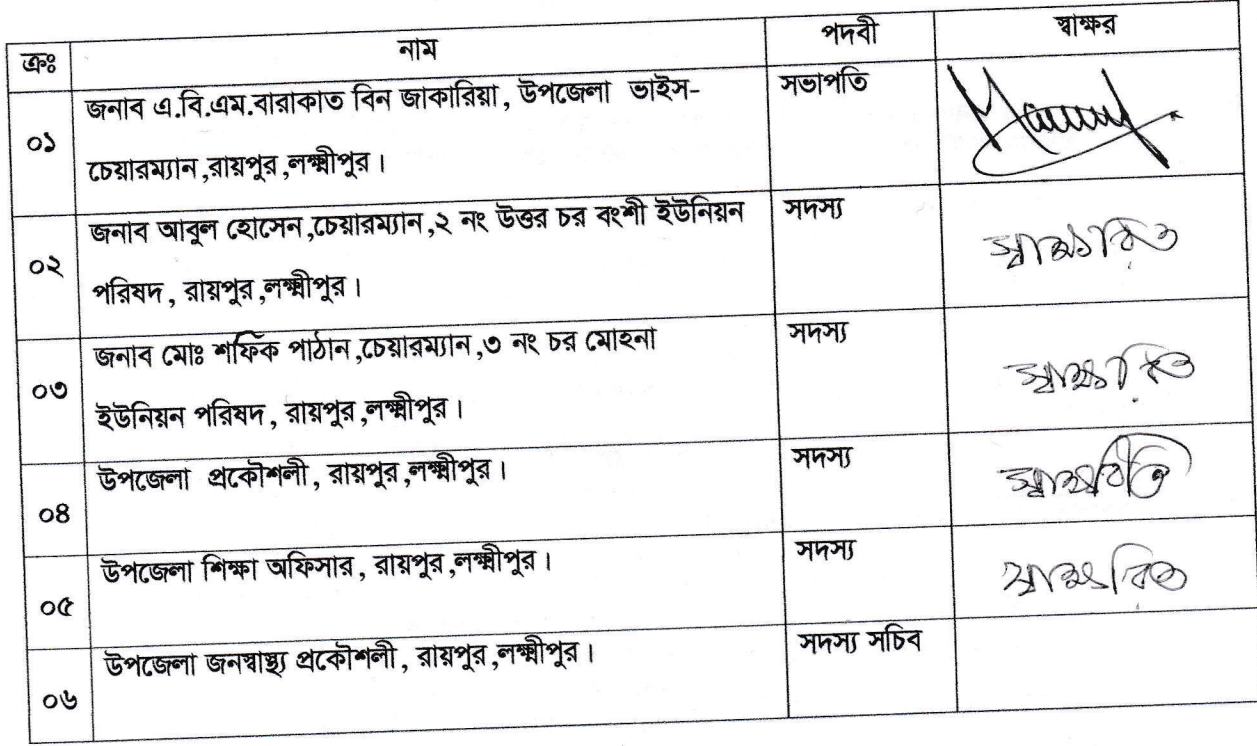 ক্রঃ নাম পদবী স্বাক্ষর
০১ জনাব এ.বি.এম.বারাকাত বিন জাকারিয়া, উপজেলা ভাইস- সভাপতি
চেয়ারম্যান,রায়পুর,লক্ষ্মীপুর।
০২ জনাব আবুল হোসেন,চেয়ারম্যান,২ নং উত্তর চর বংশী ইউনিয়ন সদস্য স্বাক্ষরিত
পরিষদ, রায়পুর,লক্ষ্মীপুর।
০৩ জনাব মোঃ শফিক পাঠান,চেয়ারম্যান,৩ নং চর মোহনা সদস্য স্বাক্ষরিত
ইউনিয়ন পরিষদ, রায়পুর,লক্ষ্মীপুর।
০৪ উপজেলা প্রকৌশলী, রায়পুর,লক্ষ্মীপুর। সদস্য স্বাক্ষরিত
০৫ উপজেলা শিক্ষা অফিসার, রায়পুর,লক্ষ্মীপুর। সদস্য স্বাক্ষরিত
০৬ উপজেলা জনস্বাস্থ্য প্রকৌশলী, রায়পুর,লক্ষ্মীপুর। সদস্য সচিব